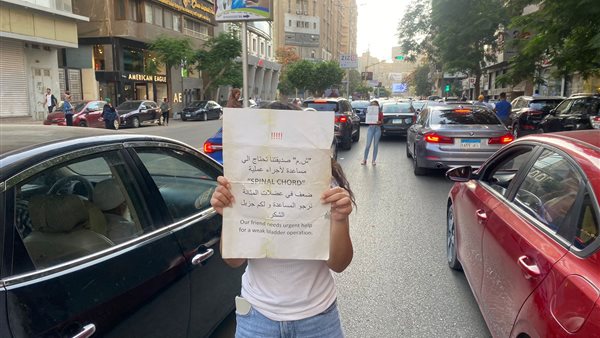 AMERICAN EAGLE
AE
!!!!!
"ش.م" صديقتنا تحتاج الي
مساعدة لأجراء عملية
"SPINAL CHORD"
ضعف في عضلات المثانة
نرجو المساعدة و لكم جزيل
الشكر.
Our friend needs urgent help
for a weak bladder operation.